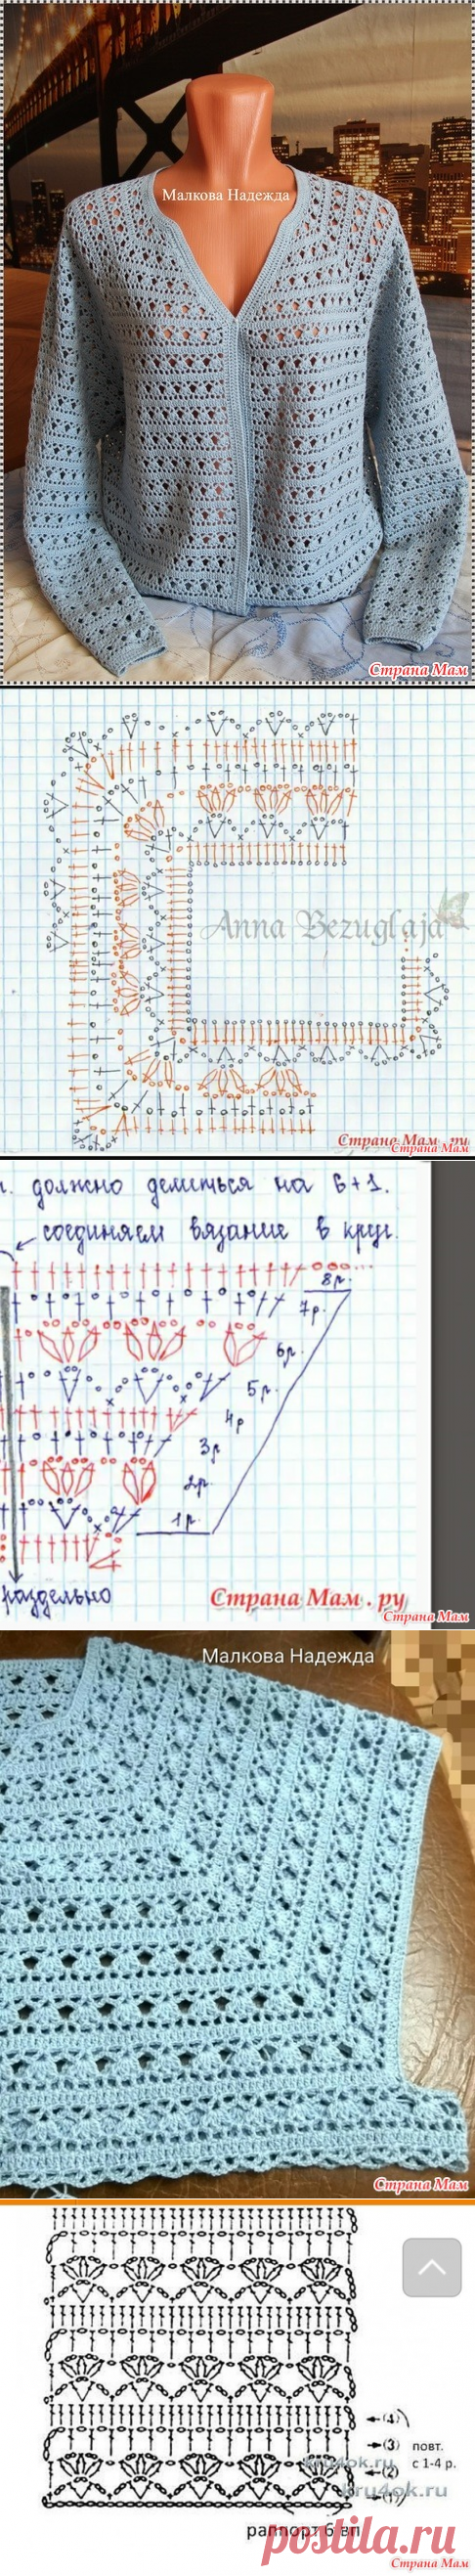 Малкова Надежда
Страна Мам
Anna Bezuglaja
Страна Мам . ру
Страна Мам
должно делиться на 6+1.
соединяем вязание в круг.
8р.
7р.
6р.
5р.
4р
3р
2р.
1р.
раздельно
Страна Мам . ру
Страна Мам
Малкова Надежда
Страна Мам
(4)
(3) повт.
с 1-4 р.
(2)
kru4ok.ru
(1)
kru4ok.ru
раппорт 6 вп
postila.ru
Страна Мам